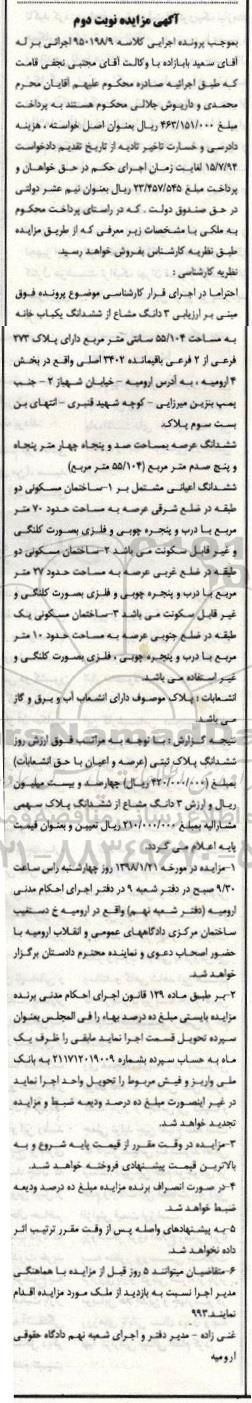 آگهی مزایده نوبت دوم
بموجب پرونده اجرایی کلاسه ۹۵۰۱۹۸/۹ اجرائی بر له
آقای سعید بابازاده با وکالت آقای مجتبی نجفی قامت
که طبق اجرائیه صادره محکوم علیهم آقایان محرم
محمدی و داریوش جلالی محکوم هستند به پرداخت
مبلغ ۴۶۳/۱۵۱/۰۰۰ ریال بعنوان اصل خواسته ، هزینه
دادرسی و خسارت تاخیر تادیه از تاریخ تقدیم دادخواست
۱۵/۷/۹۴ لغایت زمان اجرای حکم در حق خواهان و
پرداخت مبلغ ۲۳/۴۵۷/۵۴۵ ریال بعنوان نیم عشر دولتی
در حق صندوق دولت . که در راستای پرداخت محکوم
به ملکی با مشخصات زیر معرفی که از طریق مزایده
طبق نظریه کارشناس بفروش خواهد رسید.
نظریه کارشناسی :
احتراما در اجرای قرار کارشناسی موضوع پرونده فوق
مبنی بر ارزیابی ۳ دانگ مشاع از ششدانگ یکباب خانه
به مساحت ۵۵/۱۰۴ سانتی متر مربع دارای پلاک ۲۷۳
فرعی از ۲ فرعی باقیمانده ۳۴۰۲ اصلی واقع در بخش
۴ ارومیه ، به آدرس ارومیه - خیابان شهباز ۲ - جنب
پمپ بنزین میرزایی - کوچه شهید قنبری - انتهای بن
بست سوم پلاک.
ششدانگ عرصه بمساحت صد و پنجاه چهار متر پنجاه
و پنج صدم متر مربع (۵۵/۱۰۴ متر مربع)
ششدانگ اعیانی مشتمل بر ۱-ساختمان مسکونی دو
طبقه در ضلع شرقی عرصه به مساحت حدود ۷۰ متر
مربع با درب و پنجره چوبی و فلزی بصورت کلنگی
و غیر قابل سکونت می باشد ۲-ساختمان مسکونی دو
طبقه در ضلع غربی عرصه به مساحت حدود ۲۷ متر
مربع با درب و پنجره چوبی و فلزی بصورت کلنگی و
غیر قابل سکونت می باشد ۳-ساختمان مسکونی یک
طبقه در ضلع جنوبی عرصه به مساحت حدود ۱۰ متر
مربع با درب و پنجره چوبی ، فلزی بصورت کلنگی و
غیر استفاده می باشد.
انشعابات : پلاک موصوف دارای انشعاب آب و برق و گاز
می باشد.
نتیجه گزارش : با توجه به مراتب فوق ارزش روز
ششدانگ پلاک ثبتی (عرصه و اعیان با حق انشعابات)
بمبلغ (۴۲۰/۰۰۰/۰۰۰ ریال) چهارصد و بیست میلیون
ریال و ارزش ۳ دانگ مشاع از ششدانگ پلاک سهمی
مشارالیه بمبلغ ۲۱۰/۰۰۰/۰۰۰ ریال تعیین و بعنوان قیمت
پایه اعلام می گردد.
۱-مزایده در مورخه ۱۳۹۸/۱/۲۱ روز چهارشنبه راس ساعت
۹/۳۰ صبح در دفتر شعبه ۹ در دفتر اجرای احکام مدنی
ارومیه (دفتر شعبه نهم) واقع در ارومیه خ دستغیب
ساختمان مرکزی دادگاههای عمومی و انقلاب ارومیه با
حضور اصحاب دعوی و نماینده محترم دادستان برگزار
خواهد شد.
۲-بر طبق ماده ۱۲۹ قانون اجرای احکام مدنی برنده
مزایده بایستی مبلغ ده درصد بهاء را فی المجلس بعنوان
سپرده تحویل قسمت اجرا نماید مابقی را ظرف یک
ماه به حساب سپرده بشماره ۲۱۱۷۱۲۰۱۹۰۰۹ به بانک
ملی واریز و فیش مربوط را تحویل واحد اجرا نماید
در غیر اینصورت مبلغ ده درصد ودیعه ضبط و مزایده
تجدید خواهد شد.
۳-مزایده در وقت مقرر از قیمت پایه شروع و به
بالاترین قیمت پیشنهادی فروخته خواهد شد.
۴-در صورت انصراف برنده مزایده مبلغ ده درصد ودیعه
ضبط خواهد شد.
۵-به پیشنهادهای واصله پس از وقت مقرر ترتیب اثر
داده نخواهد شد.
۶-متقاضیان میتوانند ۵ روز قبل از مزایده با هماهنگی
مدیر اجرا نسبت به بازدید از ملک مورد مزایده اقدام
نمایند.۹۹۳
غنی زاده - مدیر دفتر و اجرای شعبه نهم دادگاه حقوقی
ارومیه